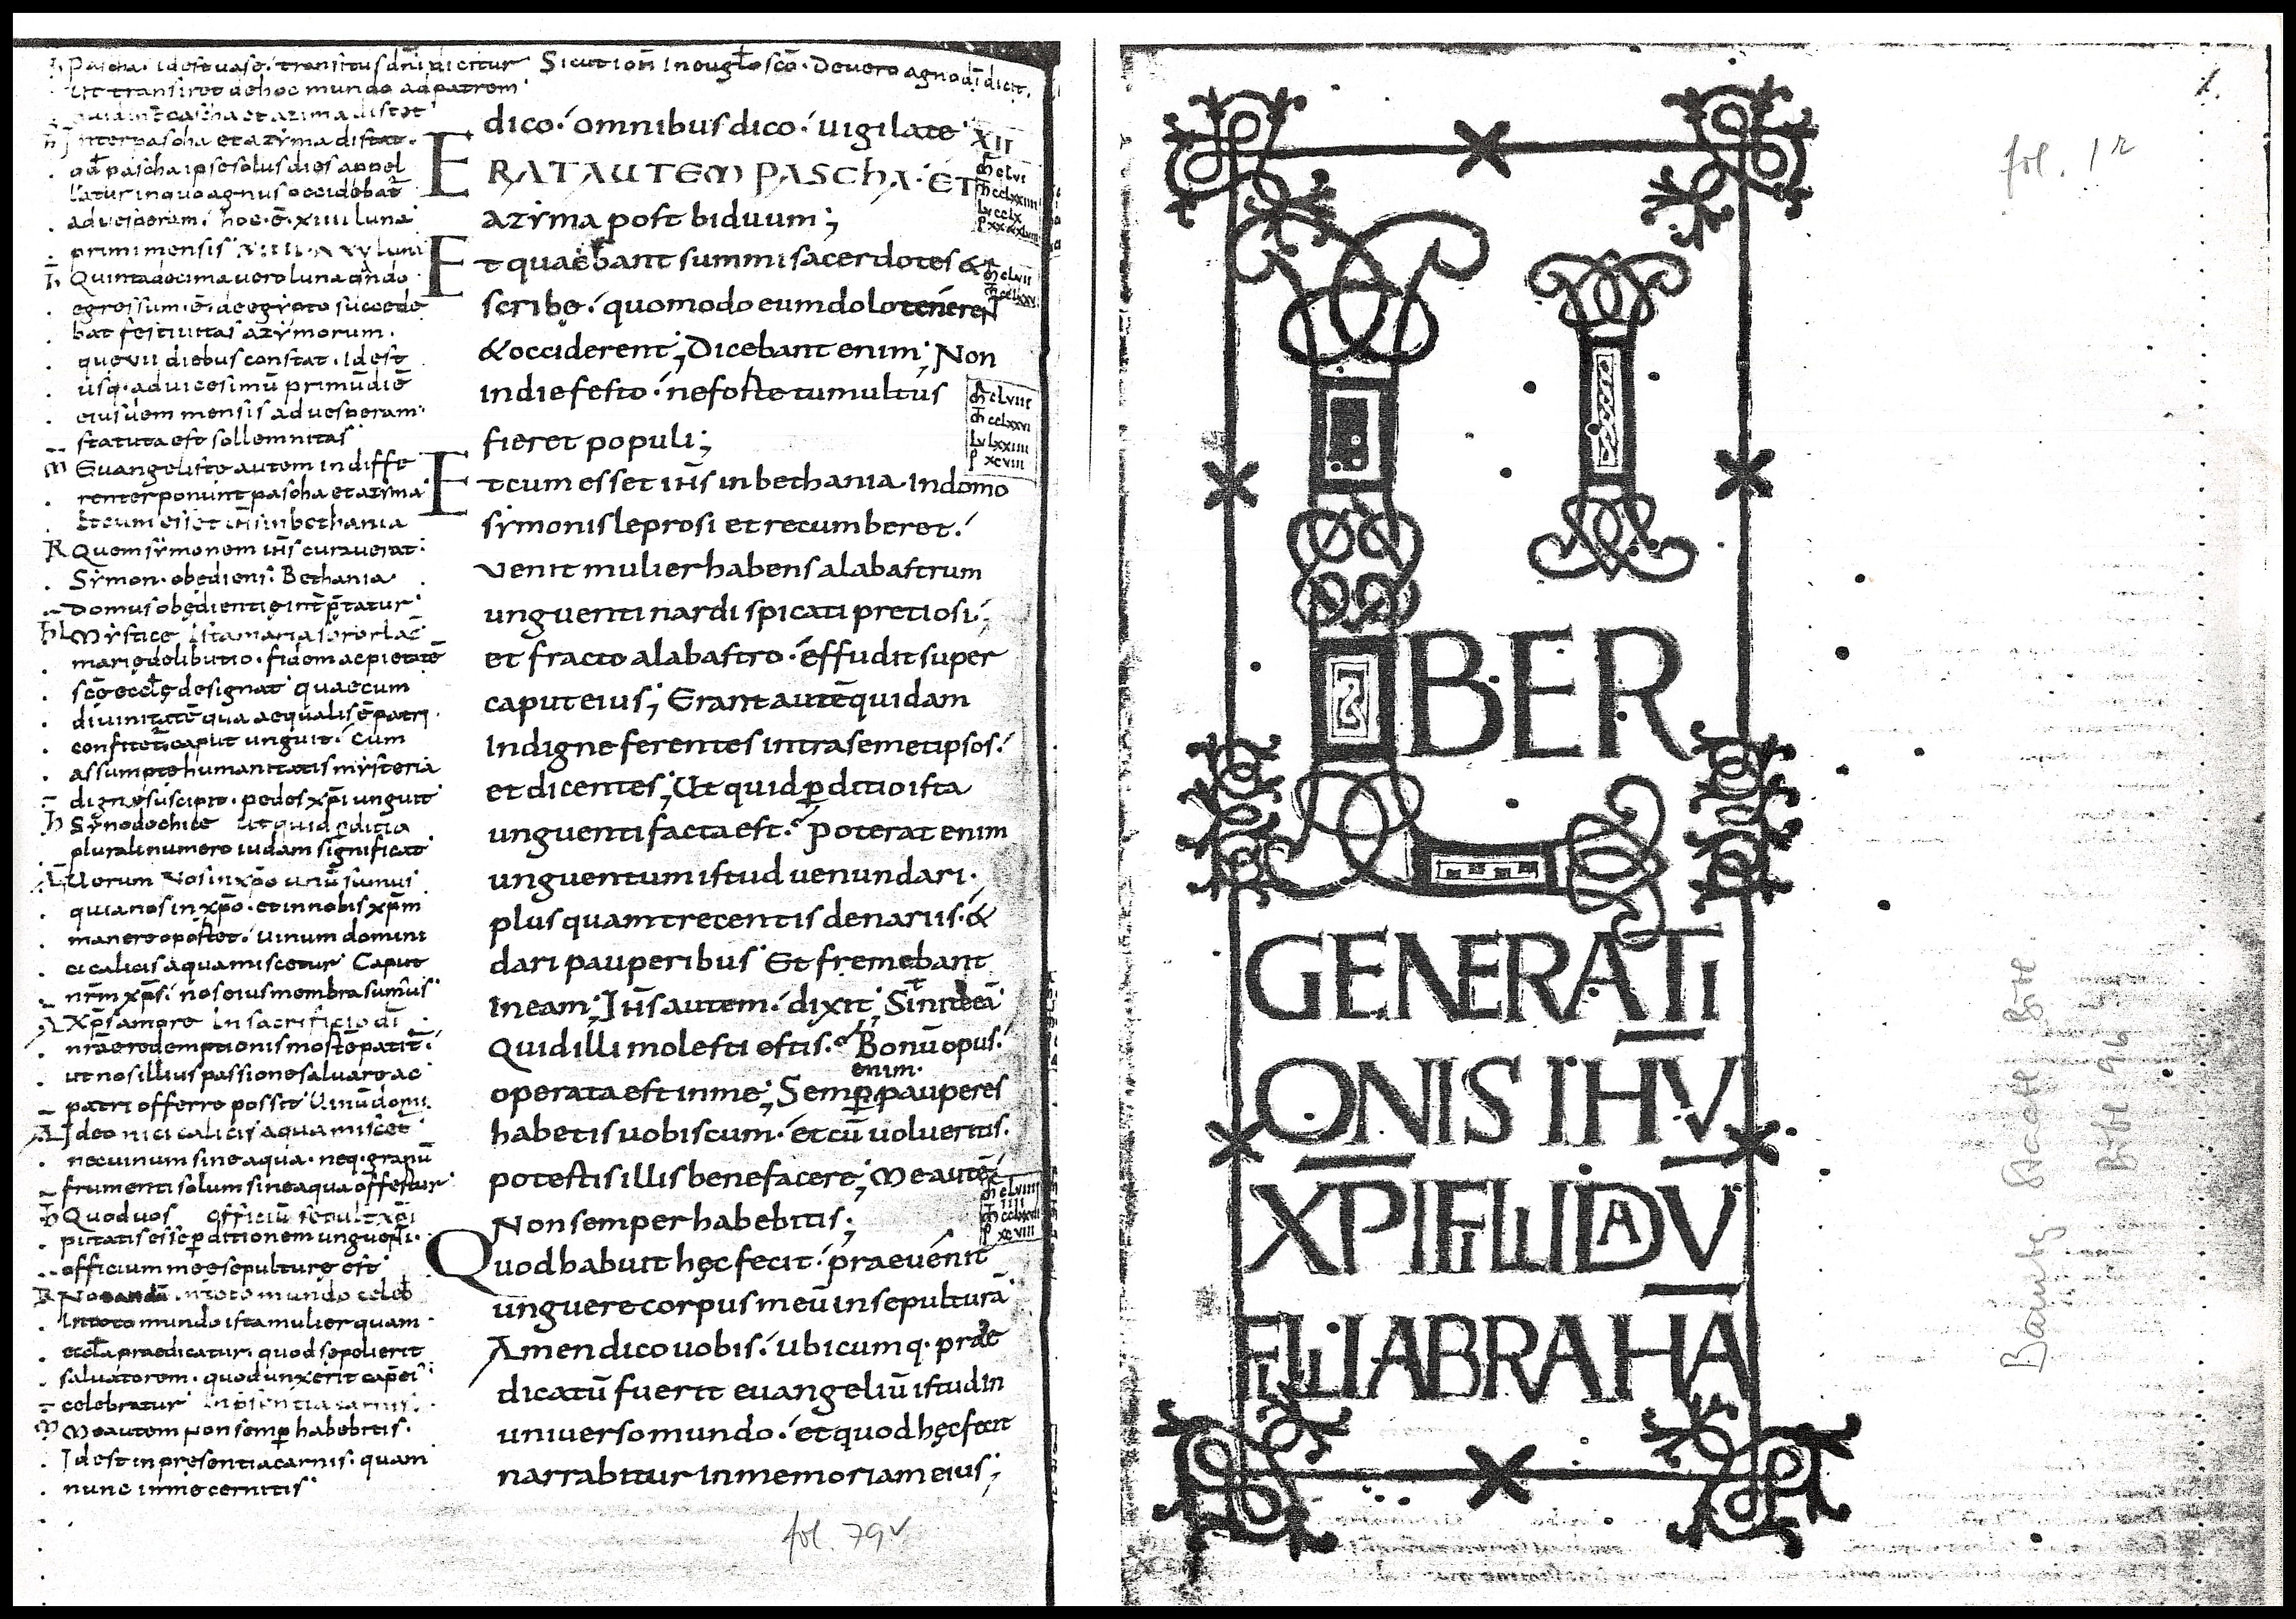 Pascha · idest uase · transitus dñi dicitur Sicut ioħ in eugło sco · De uero agno dī dicit ·
Ut transiret de hoc mundo ad patrem
Inter pascha et azyma distat ·
qđ pascha ipse solus dies appel
latur in quo agnus occidebat̄
ad uesperam · hoc · ē · xiiii luna
primi mensis
Quinta decima uero luna qn̄do
egressum · ē · de egypto succede
bat festiuitas azymorum ·
que uii diebus constat · Idest
usq · ad uicesimū primū diē
eiusdem mensis ad uesperam ·
statuta est sollemnitas
Euangeliste autem indiffe
renter ponunt pascha et azyma
Et cum esset ih̄s in bethania
Quem symonem ih̄s curauerat ·
Symon · obediens · Bethania
domus obędientię int̄p̄tatur
Mystice Ista maria soror laz̄
marię delibutio · fidem ac pietatē
scę̄ eccłę designat quae cum
diuinitatē qua aequalis ē patri ·
confitet̄ caput unguit · Cum
assumpte humanitatis mysteria
digne suscipit · pedes xp̄i unguit
Synodochice ut quid ꝑditio
plurali numero iudam significat
quia nos in xp̄o · et in nobis xp̄m
manere oportet · Uinum domini
ci calicis aqua miscetur Caput
nr̄m xp̄s · nos eius membra sumus
nrae redemptionis
ut nos illius passione saluare ac
patri offerre possit Uinū domi
nici calicis aqua miscet
nec uinum sine aqua · neq · granū
frumenti solum sine aqua offertur
Quod uos officiū sepult xp̄i
pietatis est ꝑditionem unguenti ·
officium meę sepulturę est
In toto mundo ista mulier quam
eccła praedicatur · quod sepelierit
saluatorem · quod unxerit cap̄ ei
celebratur In presentia carnis
Me autem non semꝑ habebitis ·
Idest in presentia carnis · quam
nunc in me cernitis
dico · omnibus dico · uigilate
XII
ERAT AUTEM PASCHA · ET
azyma post biduum ;
Et quaerebant summi sacerdotes &
scribę · quomodo eum dolo tenereNt
& occiderent ; Dicebant enim ; Non
in die festo · ne forte tumultus
fieret populi ;
Et cum esset ih̄s in bethania · In domo
symonis leprosi et recumberet ·
Uenit mulier habens alabastrum
unguenti nardi spicati pretiosi ·
et fracto alabastro · effudit super
caput eius ; Erant autē quidam
Indigne ferentes intra semetipsos ·
et dicentes ; Ut quid ꝑditio ista
unguenti facta est · Poterat enim
unguentum istud uenundari ·
plus quam trecentis denariis · &
dari pauperibus Et fremebant
In eam ; Ih̄s autem · dixit ; Sinite eā
Quid illi molesti estis · Bonū opus ·
enim ·
operata est in me ; Semꝑ pauperes
habetis uobiscum · et cū uolueritis ·
potestis illis benefacere ; Me autē
Non semper habebitis ;
Quod habuit hęc fecit · praeuenit
unguere corpus meū in sepulturā
Amen dico uobis · ubicumq · prae
dicatū fuerit euangeliū istud In
uniuerso mundo · et quod hęc fecit
narrabitur In memoriam eius ;
fol. 79v
1.
fol. 1r
LIBER
GENERATI
ONIS IHV
XPI FILII DAV
FILII ABRAHA
Bamberg Staatl Bibl.
Bibl 96